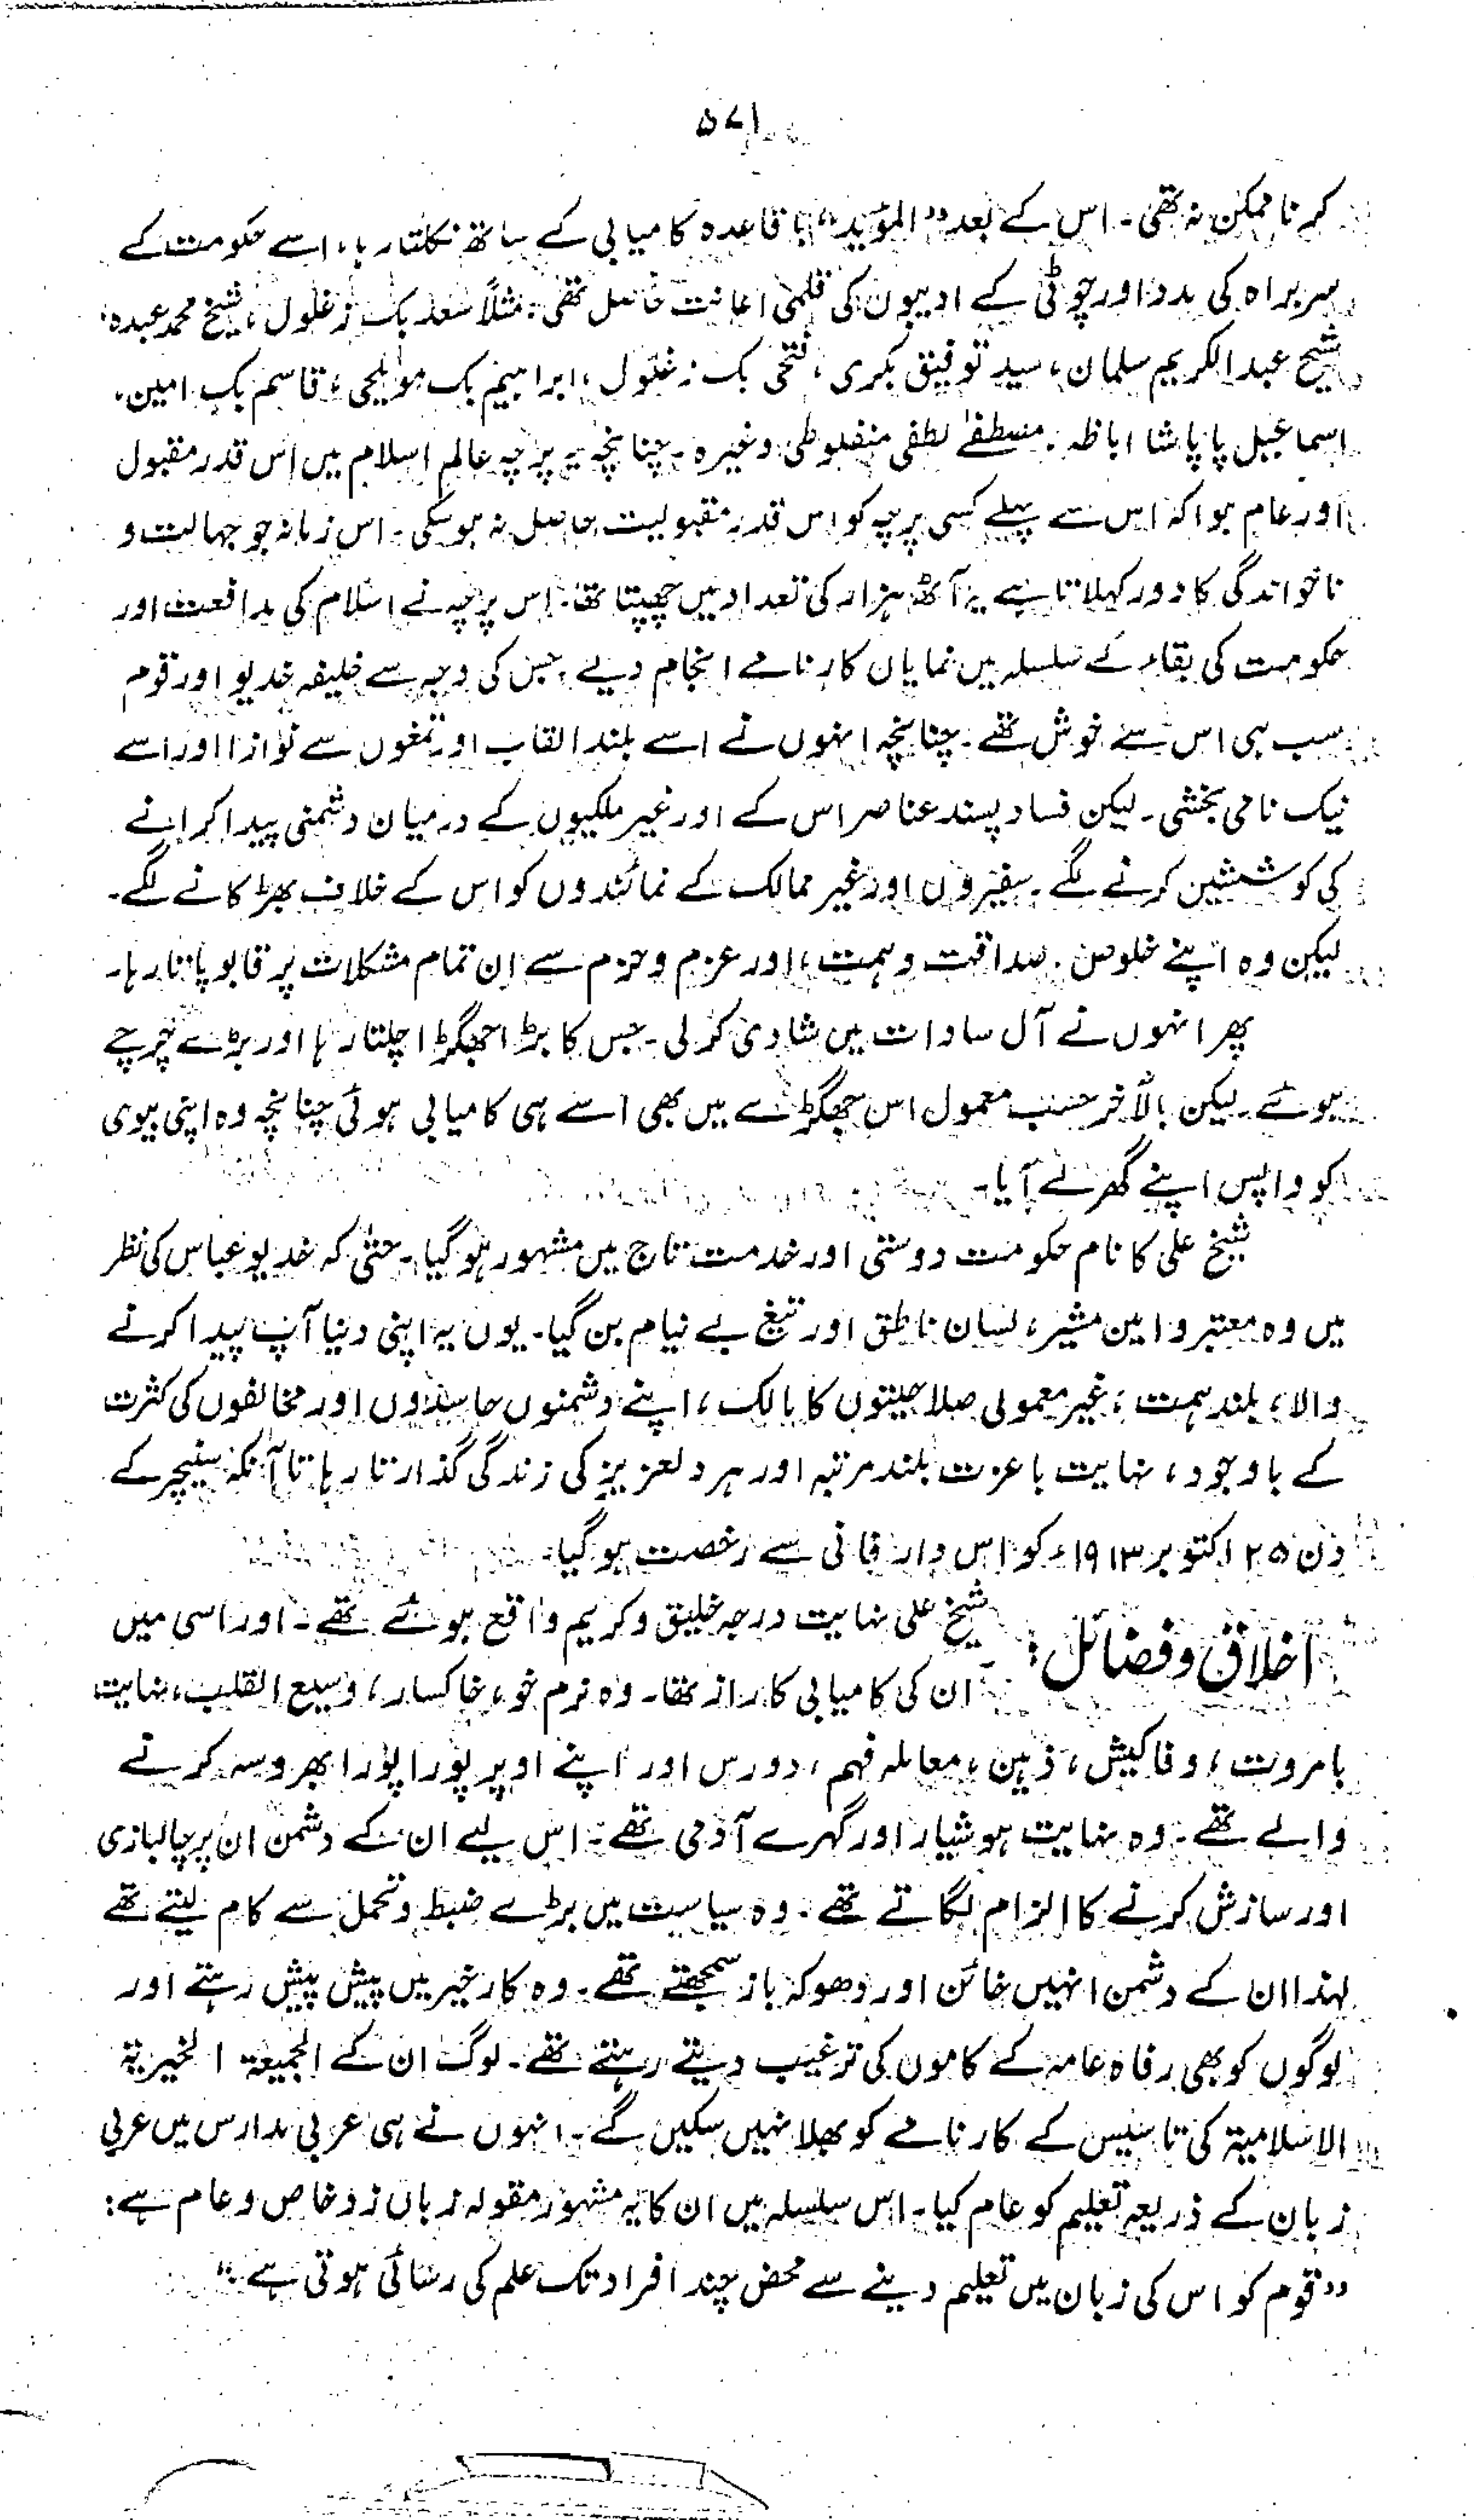 ۵۷۱
کرنا ممکن نہ تھی۔ اس کے بعد ”المؤید“ باقاعدہ کامیابی کے ساتھ نکلتا رہا، اسے حکومت کے
سربراہ کی مدد اور چوٹی کے ادیبوں کی قلمی اعانت حاصل تھی: مثلاً سعد بک زغلول، شیخ محمد عبدہ،
شیخ عبدالکریم سلمان، سید توفیق بکری، فتحی بک زغلول، ابراہیم بک مویلحی، قاسم بک امین،
اسماعیل پاپاشا اباظہ، مصطفےٰ لطفی منفلوطی وغیرہ۔ چنانچہ یہ پرچہ عالم اسلام میں اس قدر مقبول
اور عام ہوا کہ اس سے پہلے کسی پرچہ کو اس قدر مقبولیت حاصل نہ ہو سکی۔ اس زمانہ جو جہالت و
ناخواندگی کا دور کہلاتا ہے یہ آٹھ ہزار کی تعداد میں چھپتا تھا۔ اس پرچہ نے اسلام کی مدافعت اور
حکومت کی بقاء کے سلسلہ میں نمایاں کارنامے انجام دیے جس کی وجہ سے خلیفہ خدیو اور قوم
سب ہی اس سے خوش تھے۔ چنانچہ انہوں نے اسے بلند القاب اور تمغوں سے نوازا اور اسے
نیک نامی بخشی۔ لیکن فساد پسند عناصر اس کے اور غیر ملکیوں کے درمیان دشمنی پیدا کرانے
کی کوششیں کرنے لگے۔ سفیروں اور غیر ممالک کے نمائندوں کو اس کے خلاف بھڑکانے لگے۔
لیکن وہ اپنے خلوص، صداقت و ہمت، اور عزم و حزم سے ان تمام مشکلات پر قابو پاتا رہا۔
پھر انہوں نے آل سادات میں شادی کر لی۔ جس کا بڑا جھگڑا چلتا رہا اور بڑے چرچے
ہوئے۔ لیکن بالآخر حسب معمول اس جھگڑے میں بھی اسے ہی کامیابی ہوئی چنانچہ وہ اپنی بیوی
کو واپس اپنے گھر لے آیا۔
شیخ علی کا نام حکومت دوستی اور خدمت تاج میں مشہور ہو گیا۔ حتیٰ کہ خدیو عباس کی نظر
میں وہ معتبر و امین مشیر، لسان ناطق اور تیغ بے نیام بن گیا۔ یوں یہ اپنی دنیا آپ پیدا کرنے
والا، بلند ہمت، غیر معمولی صلاحیتوں کا مالک، اپنے دشمنوں حاسدوں اور مخالفوں کی کثرت
کے باوجود، نہایت باعزت بلند مرتبہ اور ہر دلعزیز کی زندگی گذارتا رہا تا آنکہ سنیچر کے
دن ۲۵ اکتوبر ۱۹۱۳ء کو اس دار فانی سے رخصت ہو گیا۔
اخلاق و فضائل: شیخ علی نہایت درجہ خلیق و کریم واقع ہوئے تھے۔ اور اسی میں
ان کی کامیابی کا راز تھا۔ وہ نرم خو، خاکسار، وسیع القلب، نہایت
بامروت، وفاکیش، ذہین، معاملہ فہم، دورس اور اپنے اوپر پورا پورا بھروسہ کرنے
والے تھے۔ وہ نہایت ہوشیار اور گہرے آدمی تھے۔ اس لیے ان کے دشمن ان پر چالبازی
اور سازش کرنے کا الزام لگاتے تھے۔ وہ سیاست میں بڑے ضبط و تحمل سے کام لیتے تھے
لہذا ان کے دشمن انہیں خائن اور دھوکہ باز سمجھتے تھے۔ وہ کار خیر میں پیش پیش رہتے اور
لوگوں کو بھی رفاہ عامہ کے کاموں کی ترغیب دیتے رہتے تھے۔ لوگ ان کے الجمیعۃ الخیریۃ
الاسلامیۃ کی تاسیس کے کارنامے کو بھلا نہیں سکیں گے۔ انہوں نے ہی عربی مدارس میں عربی
زبان کے ذریعہ تعلیم کو عام کیا۔ اس سلسلہ میں ان کا یہ مشہور مقولہ زبان زد خاص و عام ہے:
”قوم کو اس کی زبان میں تعلیم دینے سے محض چند افراد تک علم کی رسائی ہوتی ہے“